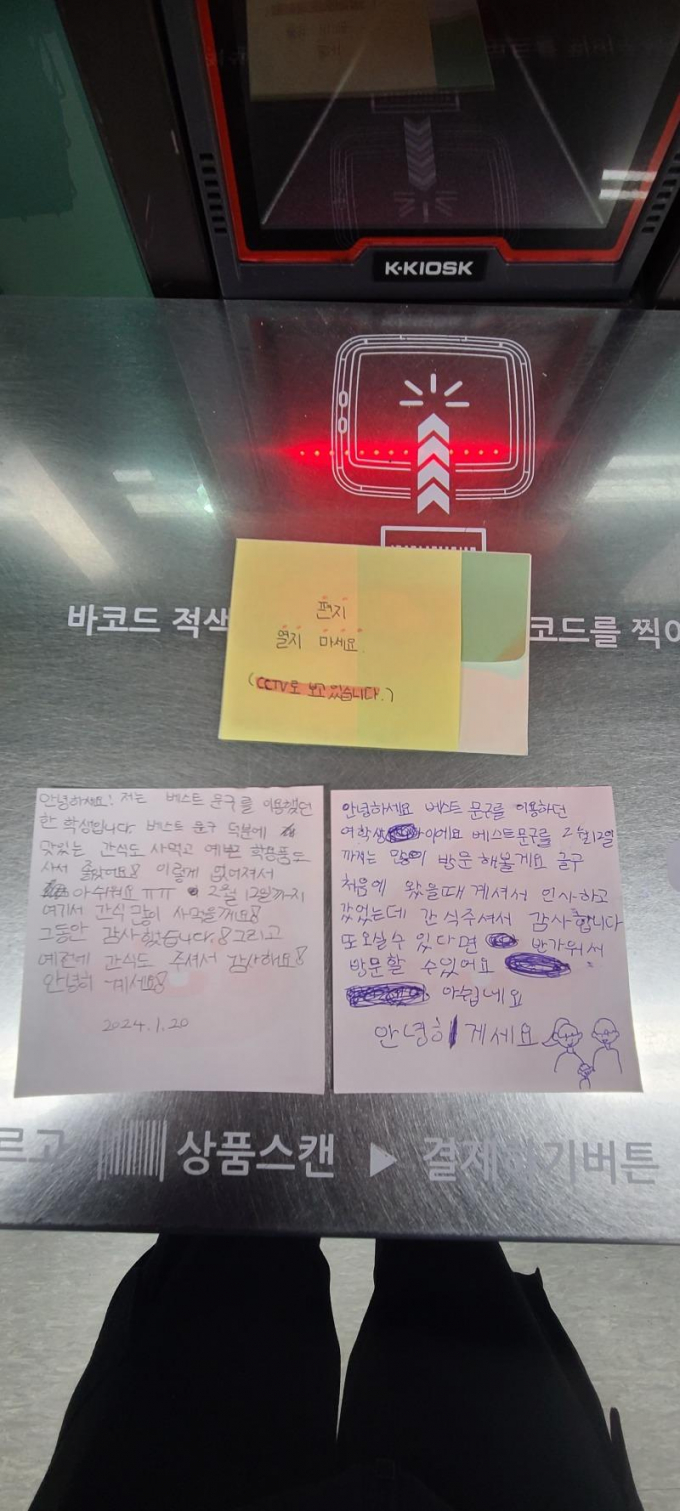 K·KIOSK
바코드 적색
코드를 찍어
편지
열지 마세요.
(CCTV로 보고 있습니다.)
안녕하세요! 저는 베스트 문구를 이용했던
한 학생입니다 베스트 문구 덕분에
맛있는 간식도 사먹고 예쁜 학용품도
사서 좋았어요! 이렇게 없어져서
아쉬워요 ㅠㅠ 2월 12일까지
여기서 간식 많이 사먹을게요!
그동안 감사했습니다! 그리고
예전에 간식도 주셔서 감사해요!
안녕히 계세요!
2024.1.20
안녕하세요 베스트 문구를 이용하던
여학생 이에요 베스트문구를 2월12일
까지는 많이 방문 해볼게요 글구
처음에 왔을때 계셔서 인사하고
갔었는데 간식주셔서 감사합니다
또오실수 있다면 반가워서
방문할 수있어요
아쉽네요
안녕히 게세요
르고 상품스캔 ▶ 결제하기버튼